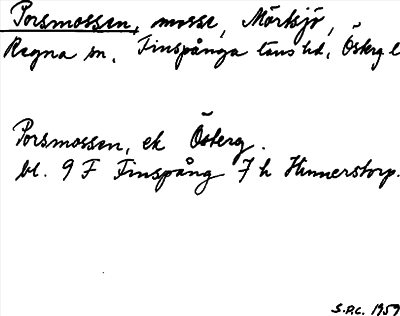 Porsmossen, mosse, Mörksjö,
Regna sn, Finspånga läns hd, Österg l
Porsmossen, ek Österg.
bl. 9 F Finspång 7 h Hunnerstorp.
S.P.C. 1959